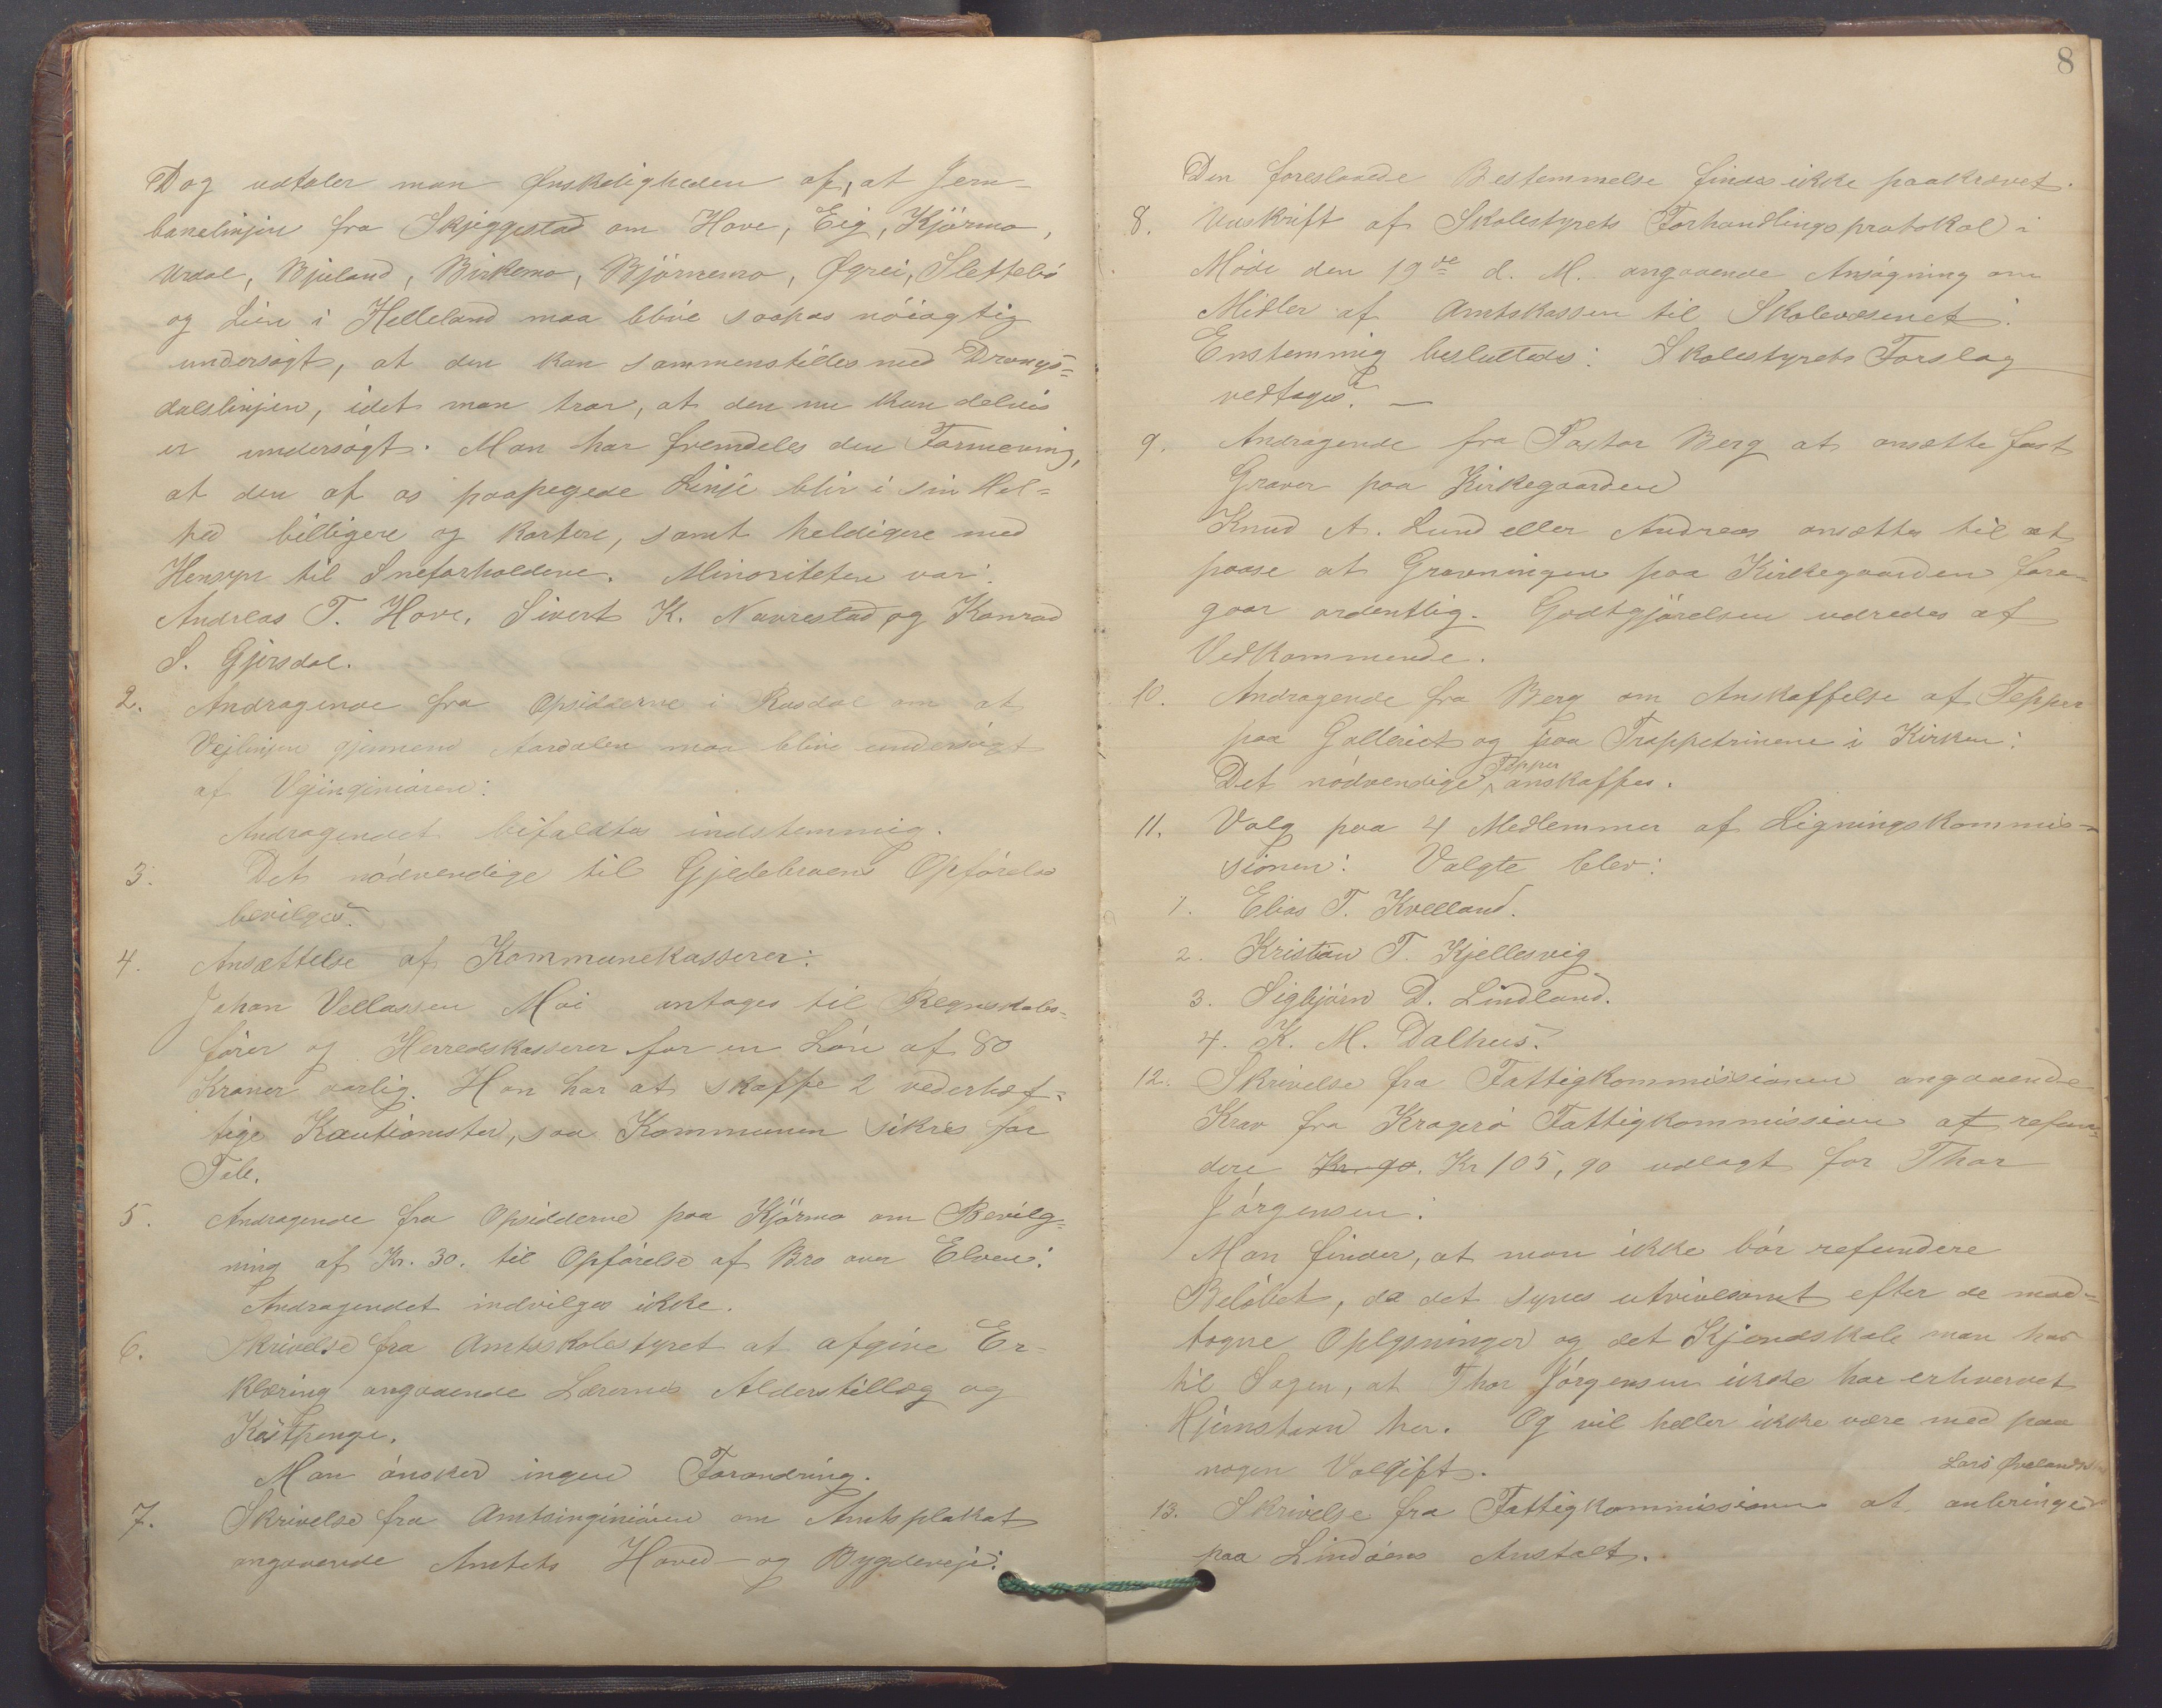 Dog udtaler man Ønskeligheden af, at Jern-
banelinjen fra Skjeggestad om Hove, Eig, Kjörmo,
Urdal, Bjuland, Birkemo, Björnemo, Øgrei, Slettebö
og Lien i Helleland maa blive saapas nöiagtig
undersögt, at den kan sammenstilles med Drangs=
dalslinjen, idet man tror, at den nu kun delvis
er undersögt. Man har fremdeles den Formening,
at den af os paapegede Linje blir i sin Hel=
hed billigere og kortere, samt heldigere med
Hensyn til Sneforholdene. Minoriteten var:
Andreas T. Hove, Sivert K. Navrestad og Konrad
S. Gjersdal.
2. Andragende fra Opsidderne i Rusdal om at
Vejlinjen gjennem Aardalen maa blive undersögt
af Vejingeniören:
Andragendet bifaldtes indstemmig.
3. Det nödvendige til Gjedebroens Opförelse
bevilges.
4. Ansættelse af Kommunekasserer:
Johan Vellassen Moi antages til Regnskabs=
förer og Herredskasserer for en Lön af 80
Kroner aarlig. Han har at skaffe 2 vederhæf=
tige Kautionister, saa Kommunen sikres for
Tab.
5. Andragende fra Opsidderne paa Kjörmo om Bevilg=
ning af Kr. 30. til Opförelse af Bro over Elven:
Andragendet indvilges ikke.
6. Skrivelse fra Amtsskolestyret at afgive Er=
klæring angaaende Lærernes Alderstillæg og
Kostpenge.
Man önsker ingen Forandring.
7. Skrivelse fra Amtsingeniören om Amtsplakat
angaaende Amtets Hoved- og Bygdeveje:
8
Den foreslaaede Bestemmelse findes ikke paakrævet.
8. Udskrift af Skolestyrets Forhandlingsprotokol i
Möde den 19de d. M. angaaende Ansögning om
Midler af Amtskassen til Skolevæsenet:
Enstemmig besluttedes: Skolestyrets Forslag
vedtages. —
9. Andragende fra Pastor Berg at ansætte fast
Graver paa Kirkegaarden
Knud A. Lund eller Andreas ansættes til at
paase at Gravningen paa Kirkegaarden fore=
gaar ordentlig. Godtgjörelsen udredes af
Vedkommende.
10. Andragende fra Berg om Anskaffelse af Tepper
paa Galleriet og paa Trappetrinene i Kirken:
Det nödvendige Tepper anskaffes.
11. Valg paa 4 Medlemmer af Ligningskommis=
sionen: Valgte blev:
1. Elias T. Kvelland.
2. Kristian T. Kjellesvig
3. Sigbjörn D. Lindland.
4. K. M. Dalhus.
12. Skrivelse fra Fattigkommissionen angaaende
Krav fra Kragerö Fattigkommission at refun=
dere Kr. 90. Kr 105,90 udlagt for Thor
Jörgensen:
Man finder, at man ikke bör refundere
Belöbet, da det synes utvivlsomt efter de mod=
tagne Oplysninger og det Kjendskab man har
til Sagen, at Thor Jörgensen ikke har erhvervet
Hjemstavn her. Og vil heller ikke være med paa
nogen Voldgift.
Lars Øvelands
13. Skrivelse fra Fattigkommissionen at anbringe
paa Lindöens Anstalt.